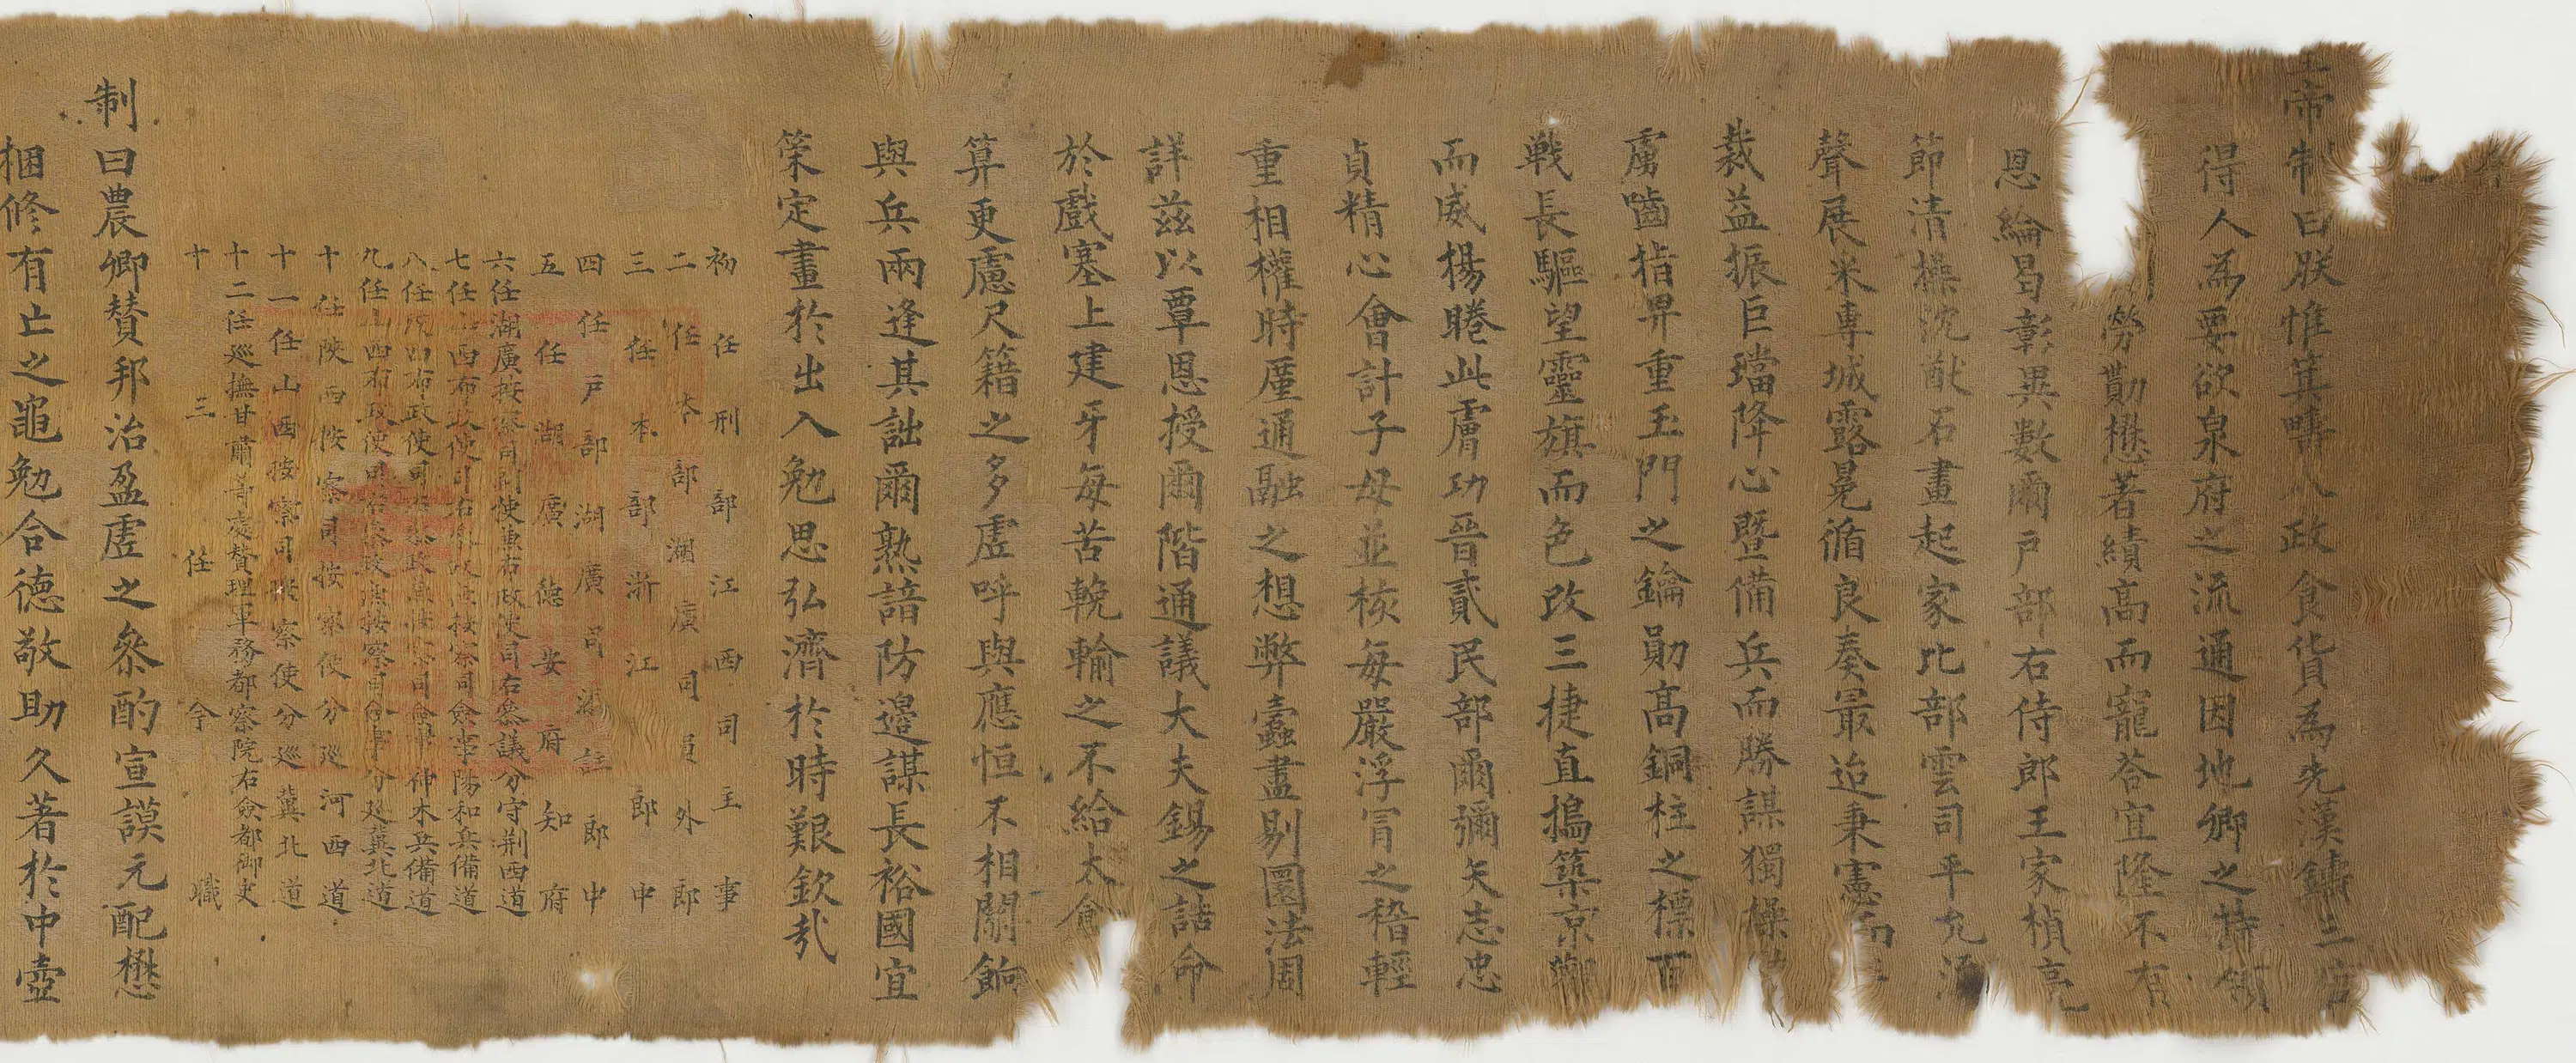 皇帝制曰朕惟箕疇八政食貨為先漢鑄三官
得人為要欲泉府之流通因地卿之特領
勞勩懋著績高而寵荅宜隆不有
恩綸曷彰異數爾戶部右侍郎王家楨亮
節清操沈猷石畫起家比部雲司平允
聲展米專城露冕循良奏最迨秉憲而
裁益振巨璫降心暨備兵而勝謀獨操
虜嚙指畀重玉門之鑰勛高銅柱之標
戰長驅望靈旗而色改三捷直搗築京
而威揚睠此膚功晉貳民部爾彌矢志忠
貞精心會計子母並核每嚴浮冒之稽輕
重相權時廑通融之想弊蠹盡剔圜法周
詳茲以覃恩授爾階通議大夫錫之誥命
於戲塞上建牙每苦輓輸之不給太倉
算更慮尺籍之多虛呼與應恒不相關餉
與兵兩逢其詘爾熟諳防邊謀長裕國宜
策定畫於出入勉思弘濟於時艱欽哉
初任刑部江西司主事
二任本部湖廣司員外郎
三任本部浙江郎中
四任戶部湖廣司郎中
五任湖廣德安府知府
六任湖廣按察司副使兼右政使司右叅議分守荆西道
七任山西布政使司右叅政兼按察司僉事陽和兵備道
八任布政使司叅政兼按察司僉事神木兵備道
九任山西布政使司右叅政兼按察司僉事分廵冀北道
十任陝西按察司按察使分廵河西道
十一任山西按察司按察使分廵冀北道
十二任廵撫甘肅等處贊理軍務都察院右僉都御史
十三任今職
制曰農卿贊邦治盈虛之叅酌宣謨元配懋
捆修有亡之黽勉合德敬助久著於中壼